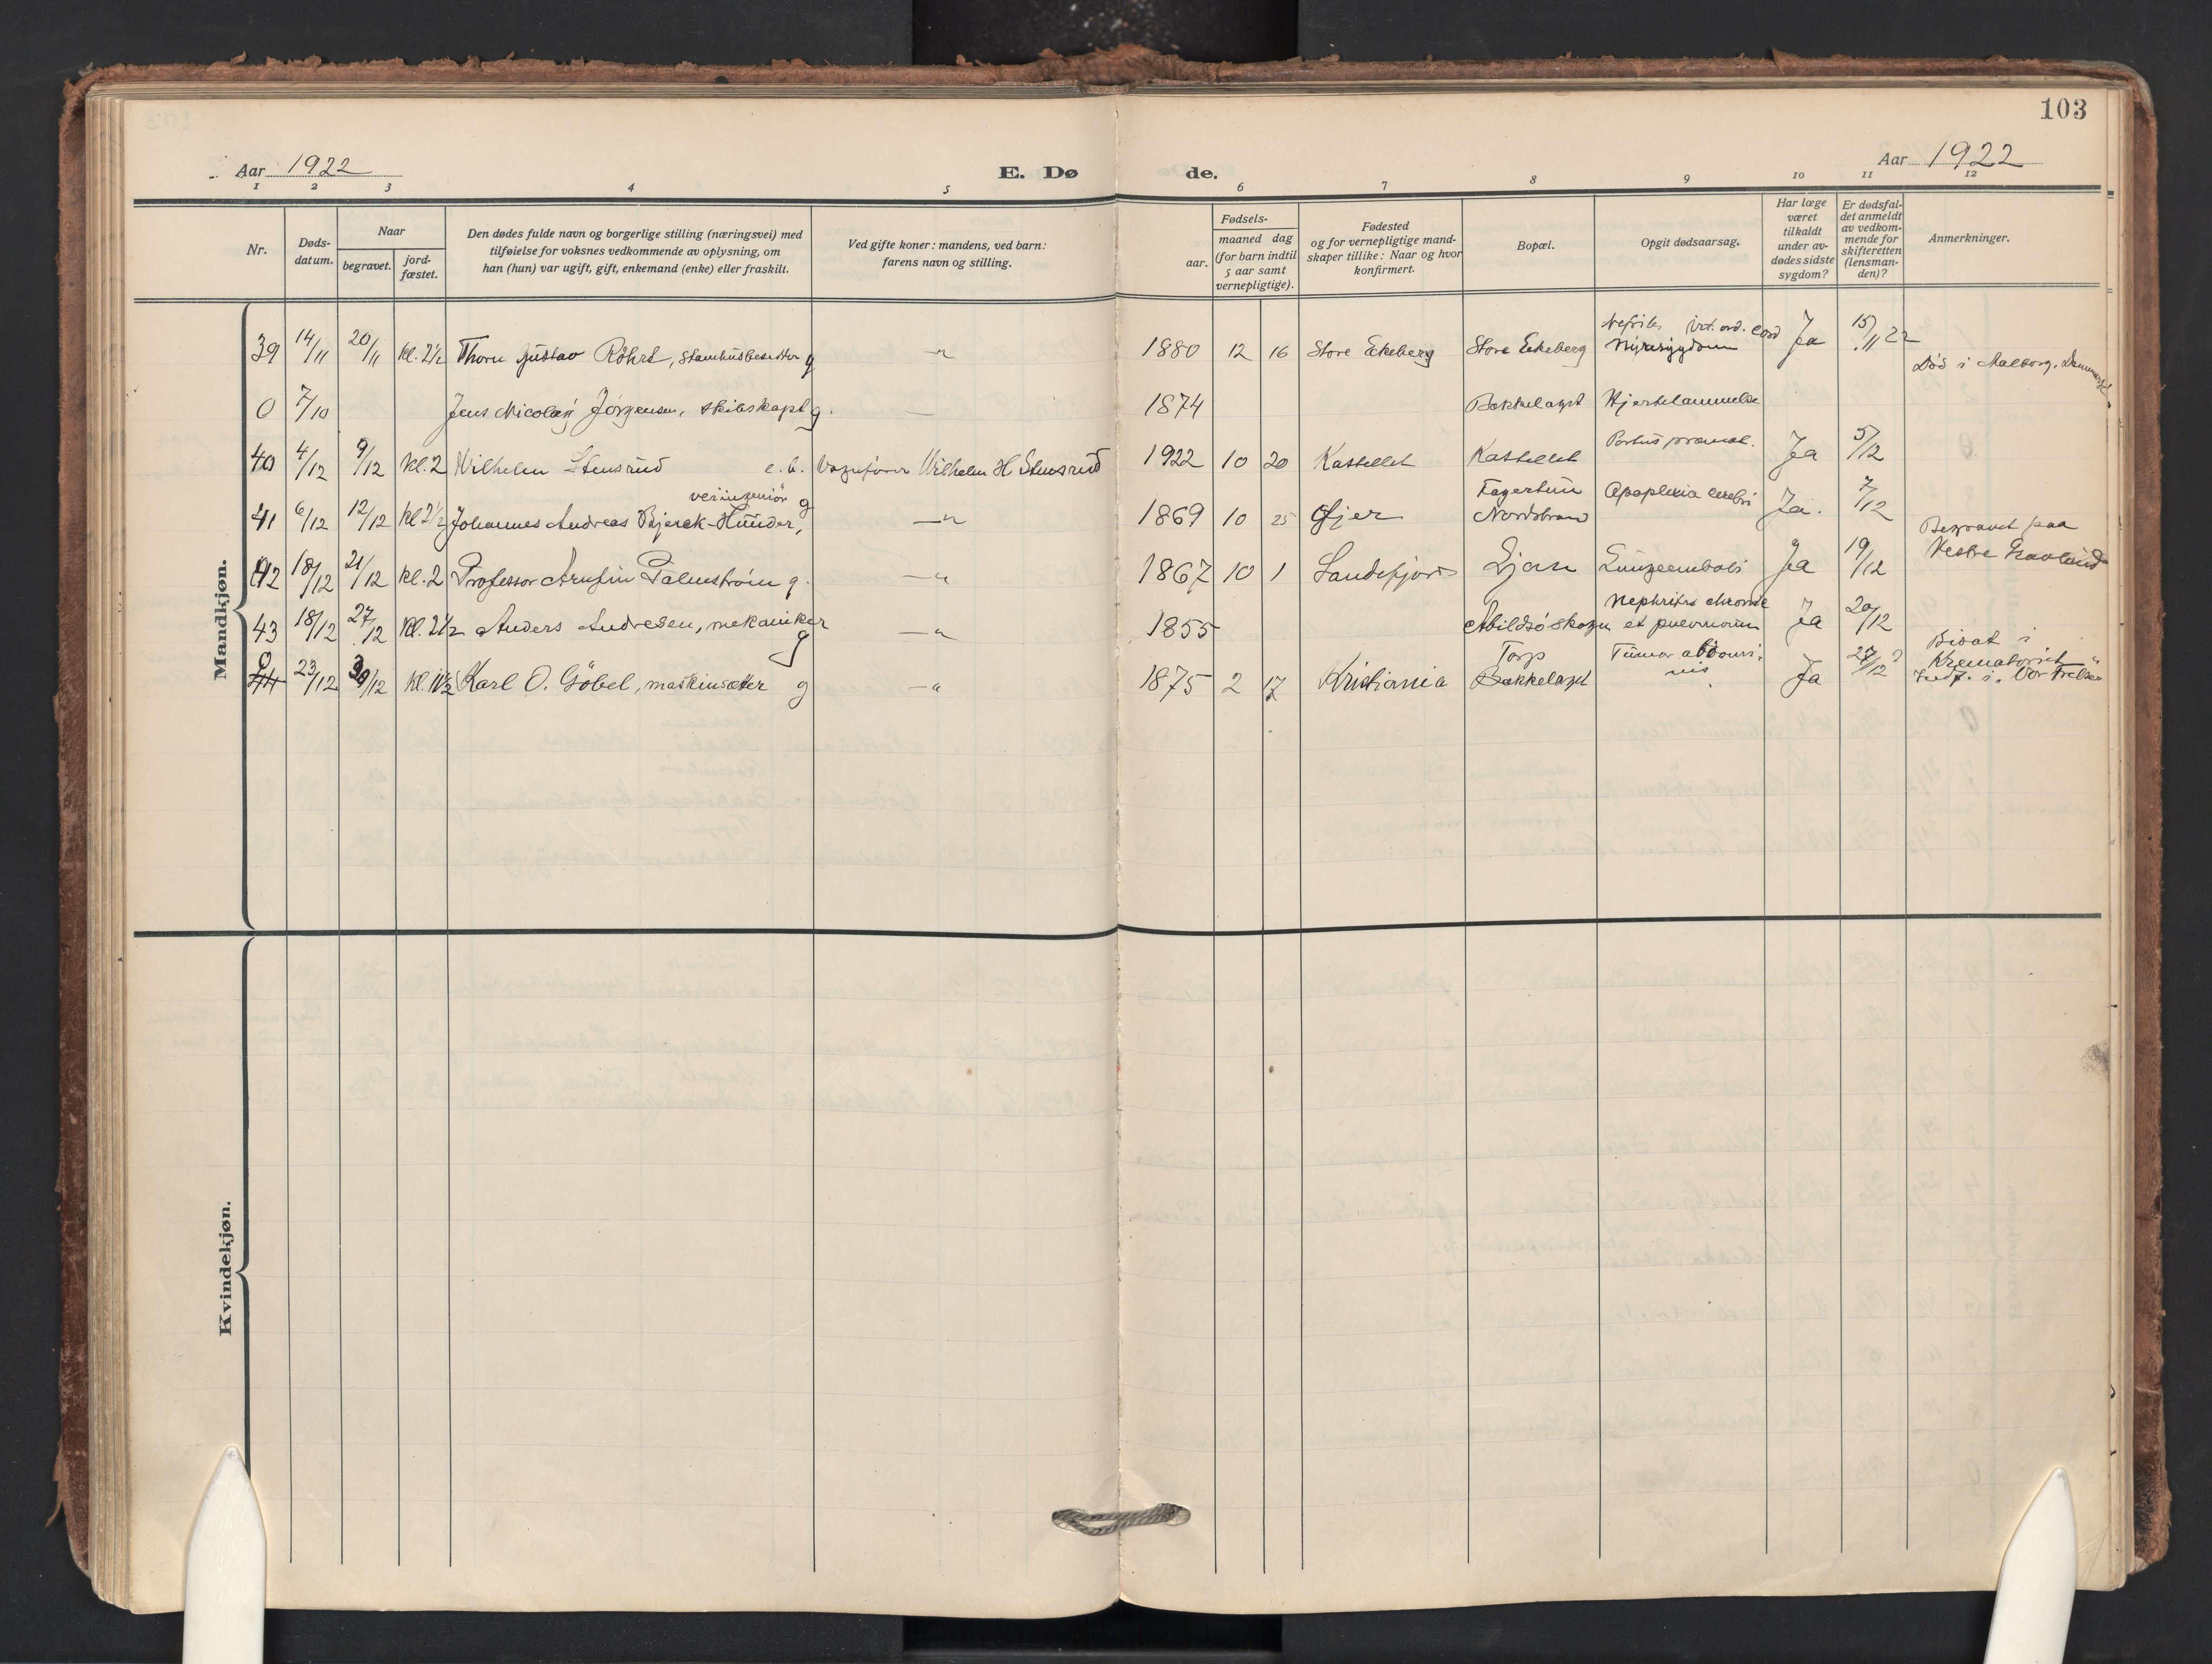 103
Aar 1922
E. Dø
de.
Aar 1922
1 2 3 4 5 6 7 8 9 10 11 12
Nr.
Døds-
datum.
Naar
begravet.
jord-
fæstet.
Den dødes fulde navn og borgerlige stilling (næringsvei) med
tilføielse for voksnes vedkommende av oplysning, om
han (hun) var ugift, gift, enkemand (enke) eller fraskilt.
Ved gifte koner: mandens, ved barn:
farens navn og stilling.
Fødsels-
aar.
maaned dag
(for barn indtil
5 aar samt
vernepligtige).
Fødested
og for vernepligtige mand-
skaper tillike: Naar og hvor
konfirmert.
Bopæl.
Opgit dødsaarsag.
Har læge
været
tilkaldt
under av-
dødes sidste
sygdom?
Er dødsfal-
det anmeldt
av vedkom-
mende for
skifteretten
(lensman-
den)?
Anmerkninger.
Mandkjøn.
39 14/11 20/11 Kl. 2½ Thorv Gustav Röhrt, g — " 1880 12 16 Store Ekeberg Store Ekeberg Nyresygdom Ja 15/11 22
Død i Aalborg, Danmark
0 7/10 Jens Nicolay Jörgensen, skibskapt g. — 1874 Bækkelaget Hjertelammelse
40 4/12 9/12 Kl. 2 Wilhelm Stensrud e. b. Vognfører Wilhelm H. Stensrud 1922 10 20 Kastellet Kastellet Partus præmat. Ja 5/12
41 6/12 12/12 Kl 2½ Johannes Andreas Bjerck-Hunder, g — " 1869 10 25 Øjer Fagertun Nordstrand Apoplexia cerebri Ja. 7/12
Begravet paa
Vestre Gravlund
42 18/12 21/12 Kl. 2 Professor Arnfin Palmström g. — " 1867 10 1 Sandefjord Ljan Lungeemboli Ja 19/12
43 18/12 27/12 Kl. 2½ Anders Andresen, mekaniker g — " 1855 Abildsöskogen Nephritis chronic et pneumonia Ja 20/12
0 44 23/12 30/12 Kl. 11½ Karl O. Göbel, maskinsætter g — " 1875 2 17 Kristiania Torp Bækkelaget Tumor abdomi- nis Ja 27/12
Bisat i
Krematoriet
Vor Frelser
Kvindekjøn.